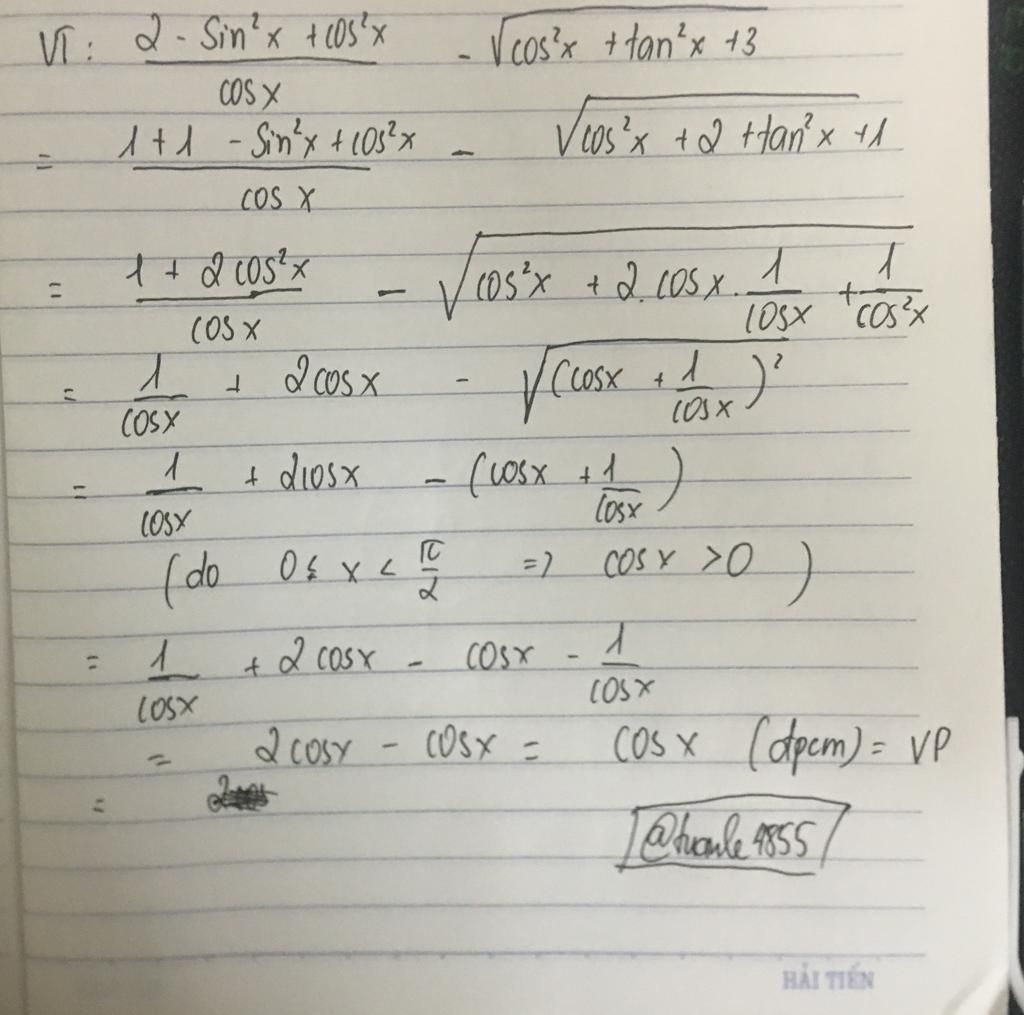 VT: (2 - sin²x + cos²x)/cosx - √(cos²x + tan²x + 3)
= (1 + 1 - sin²x + cos²x)/cos x - √(cos²x + 2 + tan²x + 1)
= (1 + 2cos²x)/cosx - √(cos²x + 2.cosx.1/cosx + 1/cos²x)
= 1/cosx + 2cosx - √((cosx + 1/cosx)²)
= 1/cosx + 2cosx - (cosx + 1/cosx)
(do 0 ≤ x < π/2 => cosx > 0)
= 1/cosx + 2cosx - cosx - 1/cosx
= 2cosx - cosx = cosx (đpcm) = VP
=
@tuanle4855
HẢI TIẾN